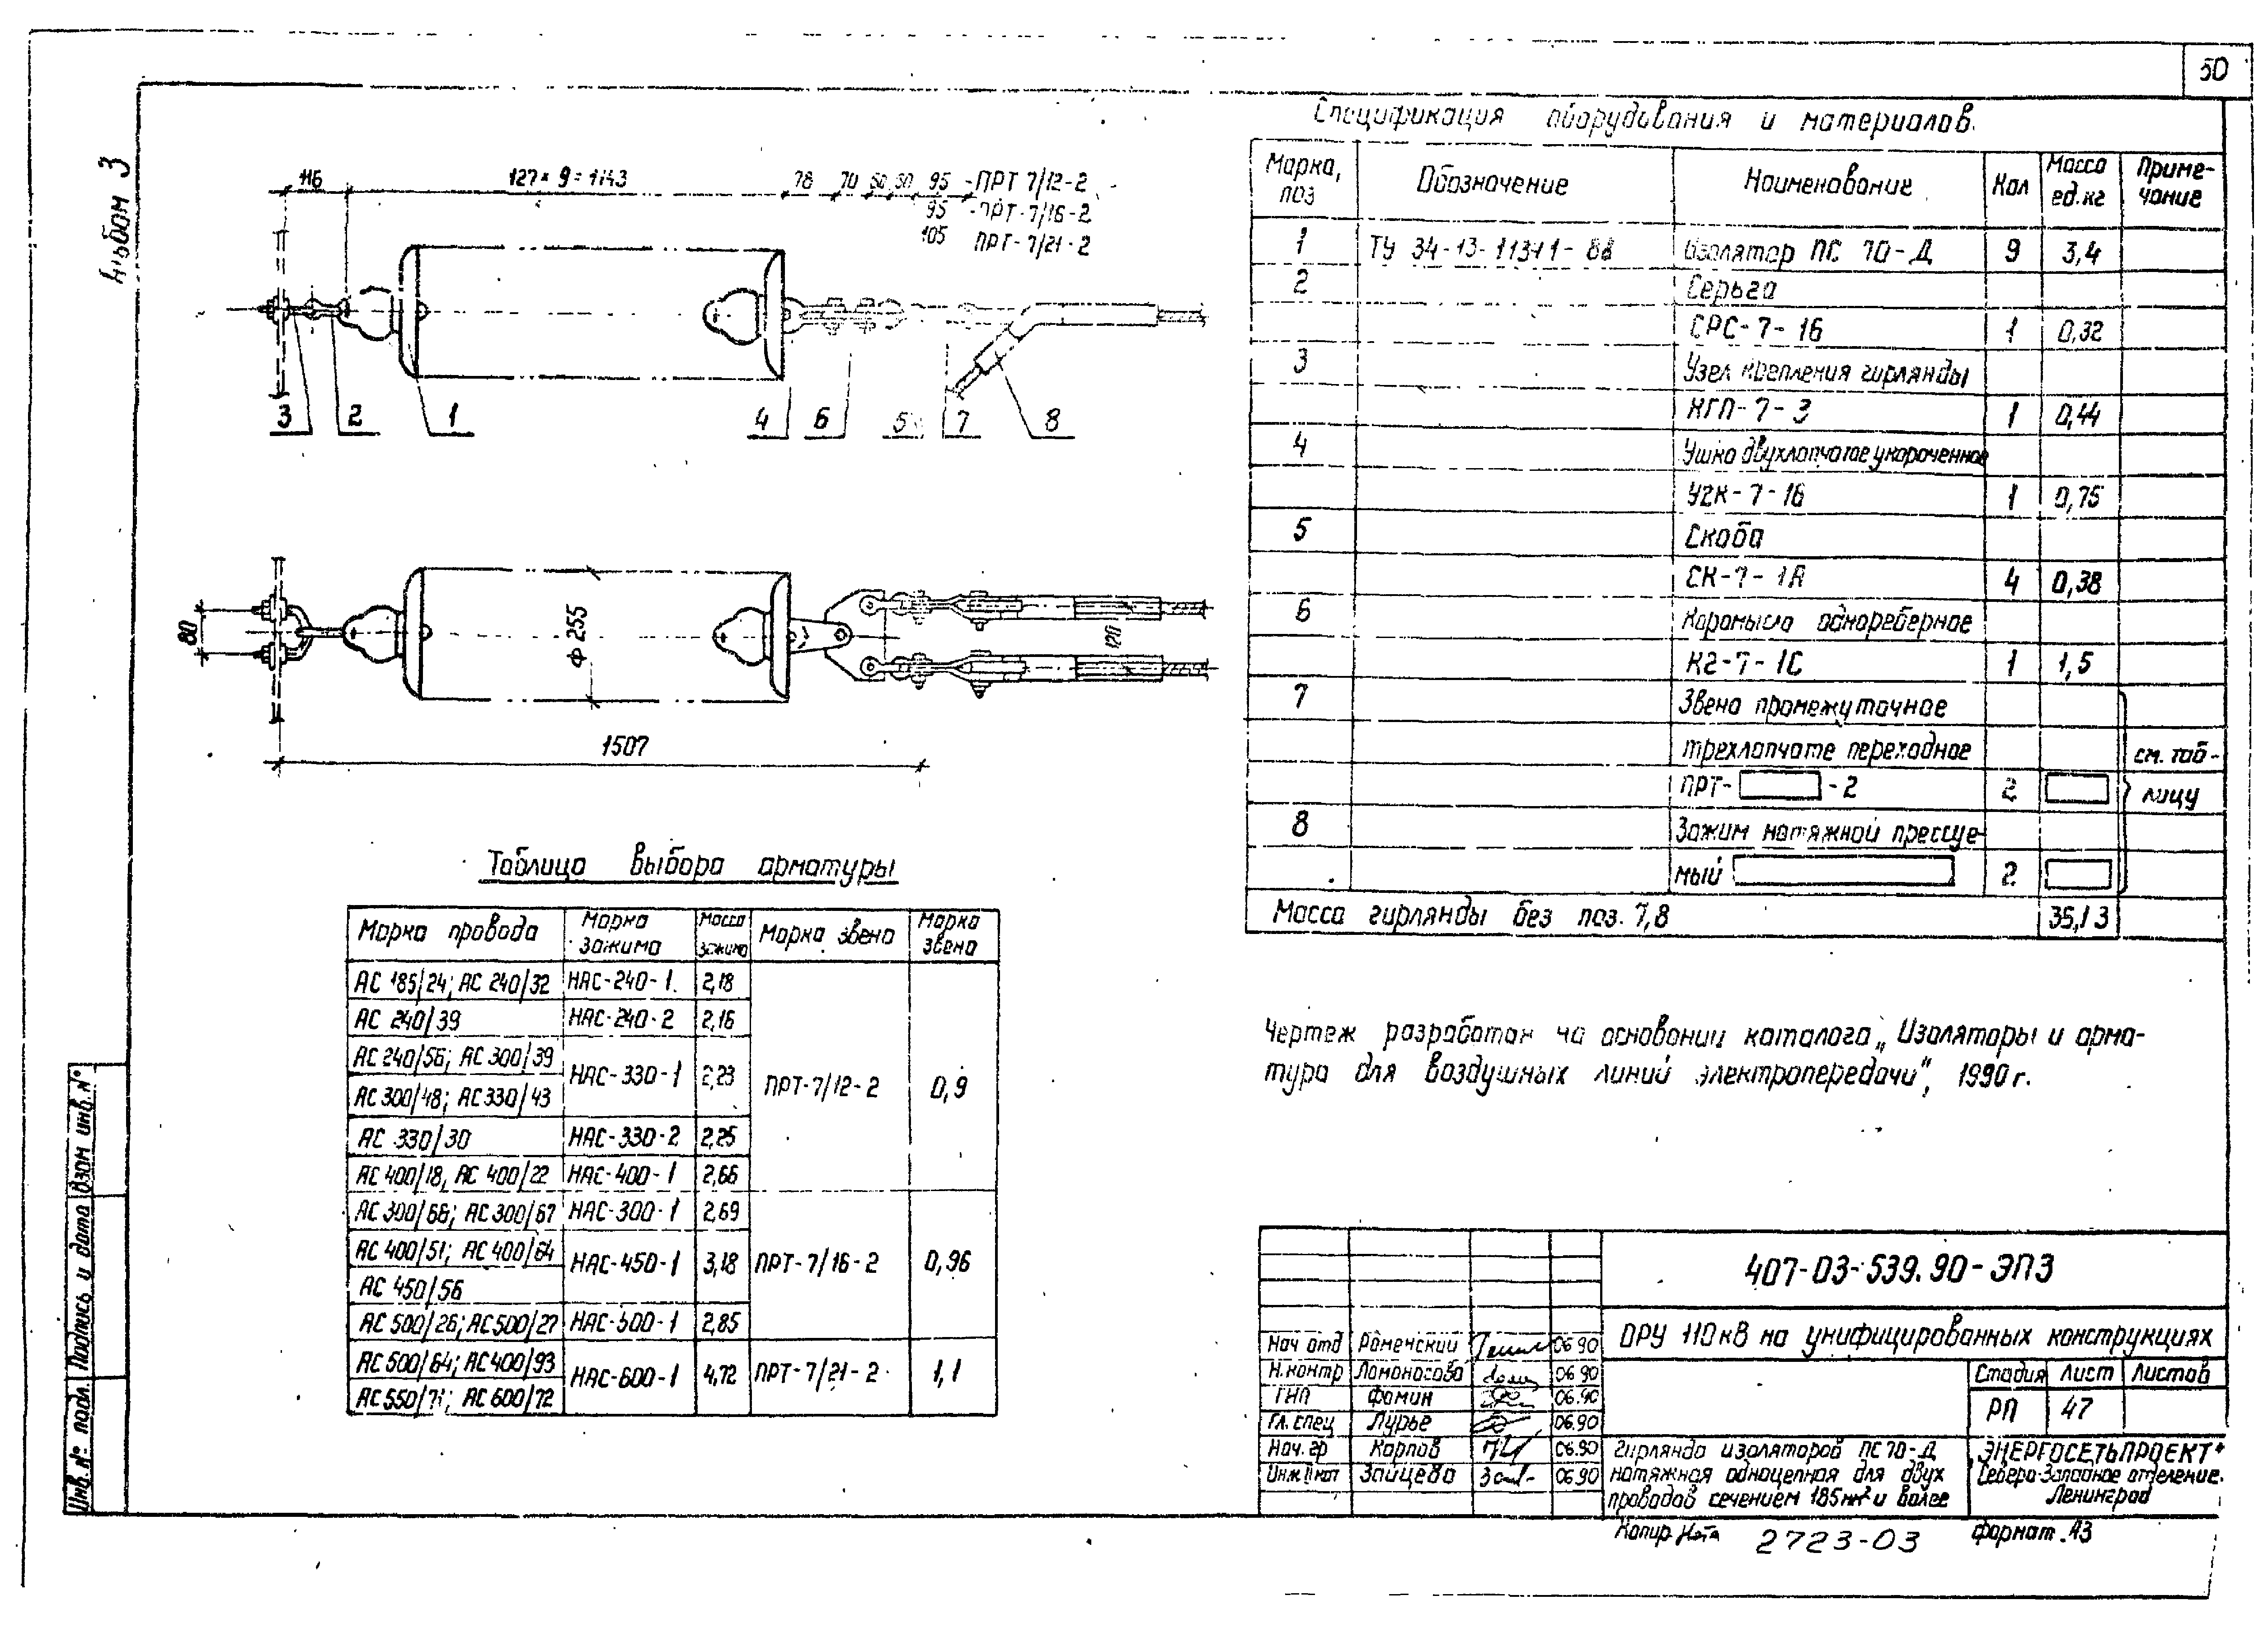 50
Альбом 3
116
127×9=1143
78 70 50 50 95 -ПРТ 7/12-2
95 -ПРТ-7/16-2
105 ПРТ-7/21-2
3 2 1 4 6 5 7 8
80
Ф 255
120
1507
Спецификация оборудования и материалов.
Марка, поз
Обозначение
Наименование
Кол
Масса ед.кг
Примечание
1 ТУ 34-13-11311-88 Изолятор ПС 70-Д 9 3,4
2 Серьга
СРС-7-16 1 0,32
3 Узел крепления гирлянды
КГП-7-3 1 0,44
4 Ушко двухлапчатое укороченное
У2К-7-16 1 0,75
5 Скоба
СК-7-1А 4 0,38
6 Коромысло однореберное
К2-7-1С 1 1,5
7 Звено промежуточное
трехлапчате переходное см. таб-
ПРТ- -2 2 лицу
8 Зажим натяжной прессуе-
мый 2
Масса гирлянды без поз. 7,8 35,13
Таблица выбора арматуры
Марка провода
Марка зажима
Масса зажима
Марка звена
Марка звена
АС 185/24; АС 240/32 НАС-240-1 2,18
АС 240/39 НАС-240-2 2,16
АС 240/56; АС 300/39
НАС-330-1 2,23 ПРТ-7/12-2 0,9
АС 300/48; АС 330/43
АС 330/30 НАС-330-2 2,25
АС 400/18, АС 400/22 НАС-400-1 2,66
АС 300/66; АС 300/67 НАС-300-1 2,69
АС 400/51; АС 400/64
НАС-450-1 3,18 ПРТ-7/16-2 0,96
АС 450/56
АС 500/26; АС 500/27 НАС-500-1 2,85
АС 500/64; АС 400/93
НАС-600-1 4,72 ПРТ-7/21-2 1,1
АС 550/71; АС 600/72
Чертеж разработан на основании каталога „Изоляторы и арма-
тура для воздушных линий электропередачи", 1990 г.
Инв. № подл. Подпись и дата Взам инв. №
407-03-539.90-ЭП3
ОРУ 110 кВ на унифицированных конструкциях
Нач отд Роменский 06 90
Н.контр Ломоносова 06 90
ГИП Фомин 06.90
Гл. спец Лурье 06.90
Нач. гр Карпов 06.90
Инж II кат Зайцева 06.90
Стадия Лист Листов
РП 47
Гирлянда изоляторов ПС 70-Д
натяжная одноцепная для двух
проводов сечением 185мм² и более
ЭНЕРГОСЕТЬПРОЕКТ
Северо-Западное отделение.
Ленинград
Копир. 2723-03 Формат А3